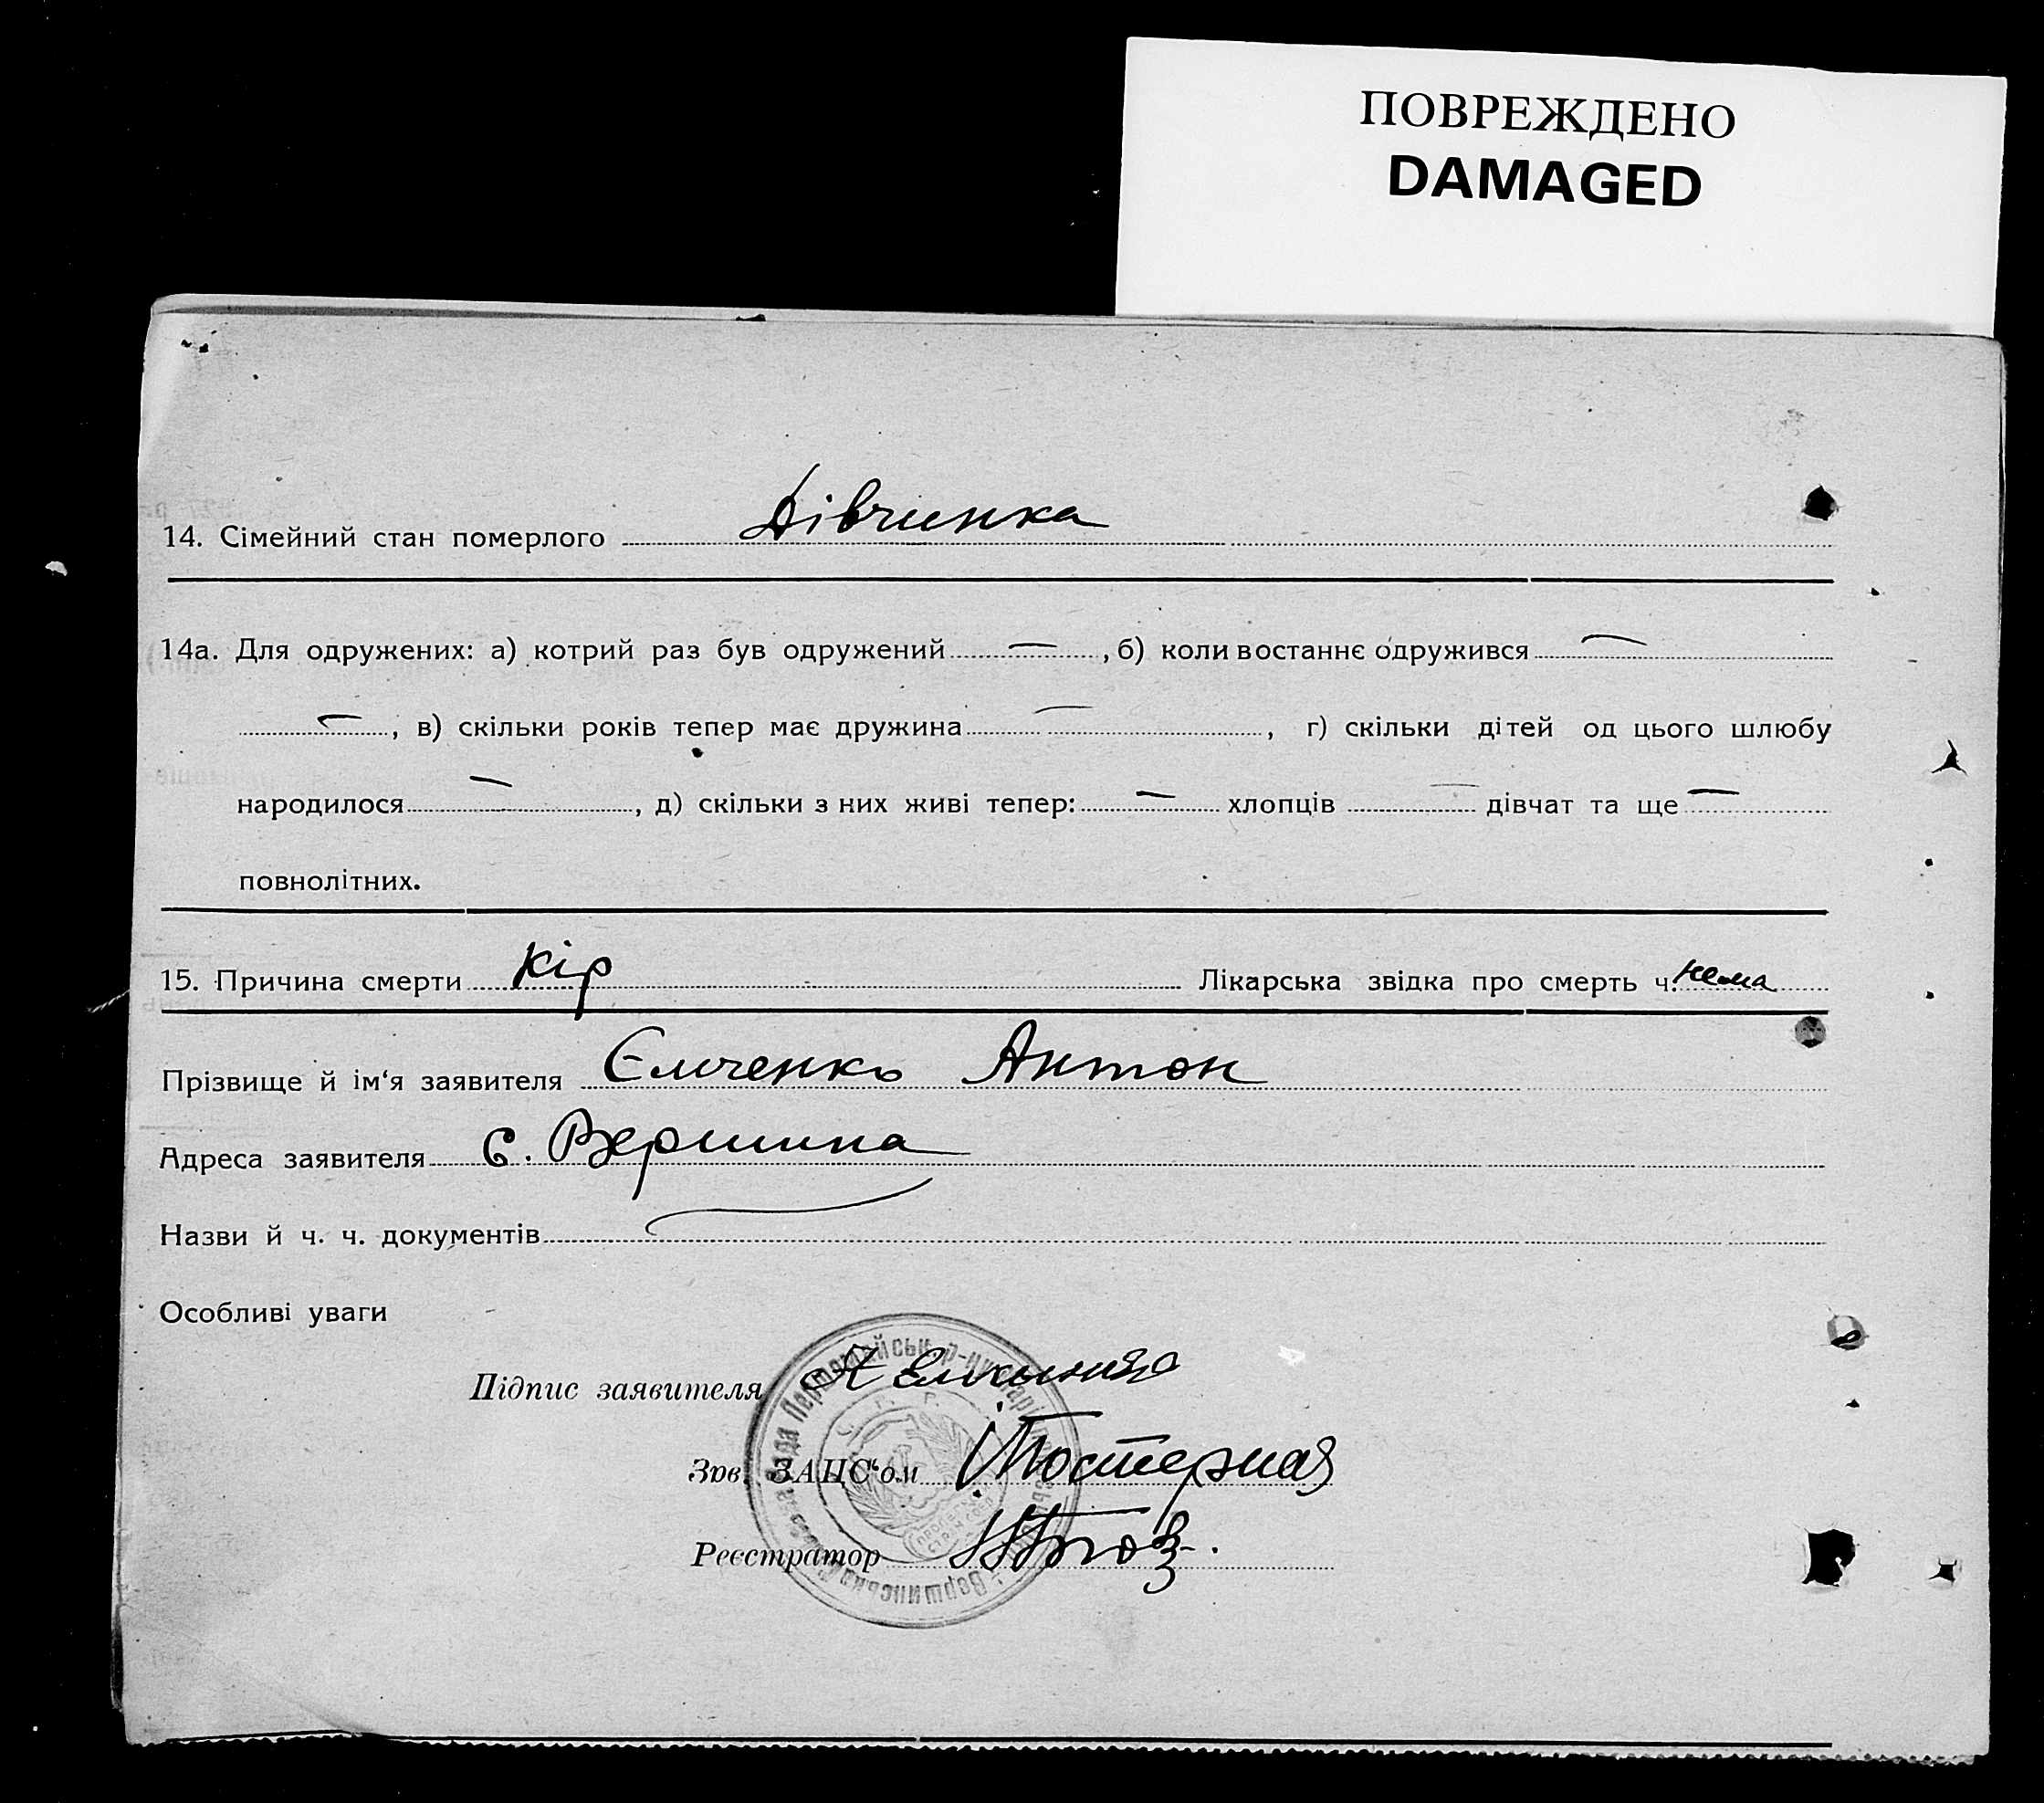 ПОВРЕЖДЕНО
DAMAGED
14. Сімейний стан померлого Дівчинка
14а. Для одружених: а) котрий раз був одружений — , б) коли востаннє одружився —
— , в) скільки років тепер має дружина — , г) скільки дітей од цього шлюбу
народилося — , д) скільки з них живі тепер: — хлопців — дівчат та ще —
повнолітних.
15. Причина смерти Кір Лікарська звідка про смерть ч. нема
Прізвище й ім‘я заявителя Ємченко Антон
Адреса заявителя С. Вершина
Назви й ч. ч. документів
Особливі уваги
Підпис заявителя А
Зав. ЗАЦС‘ом
Реєстратор